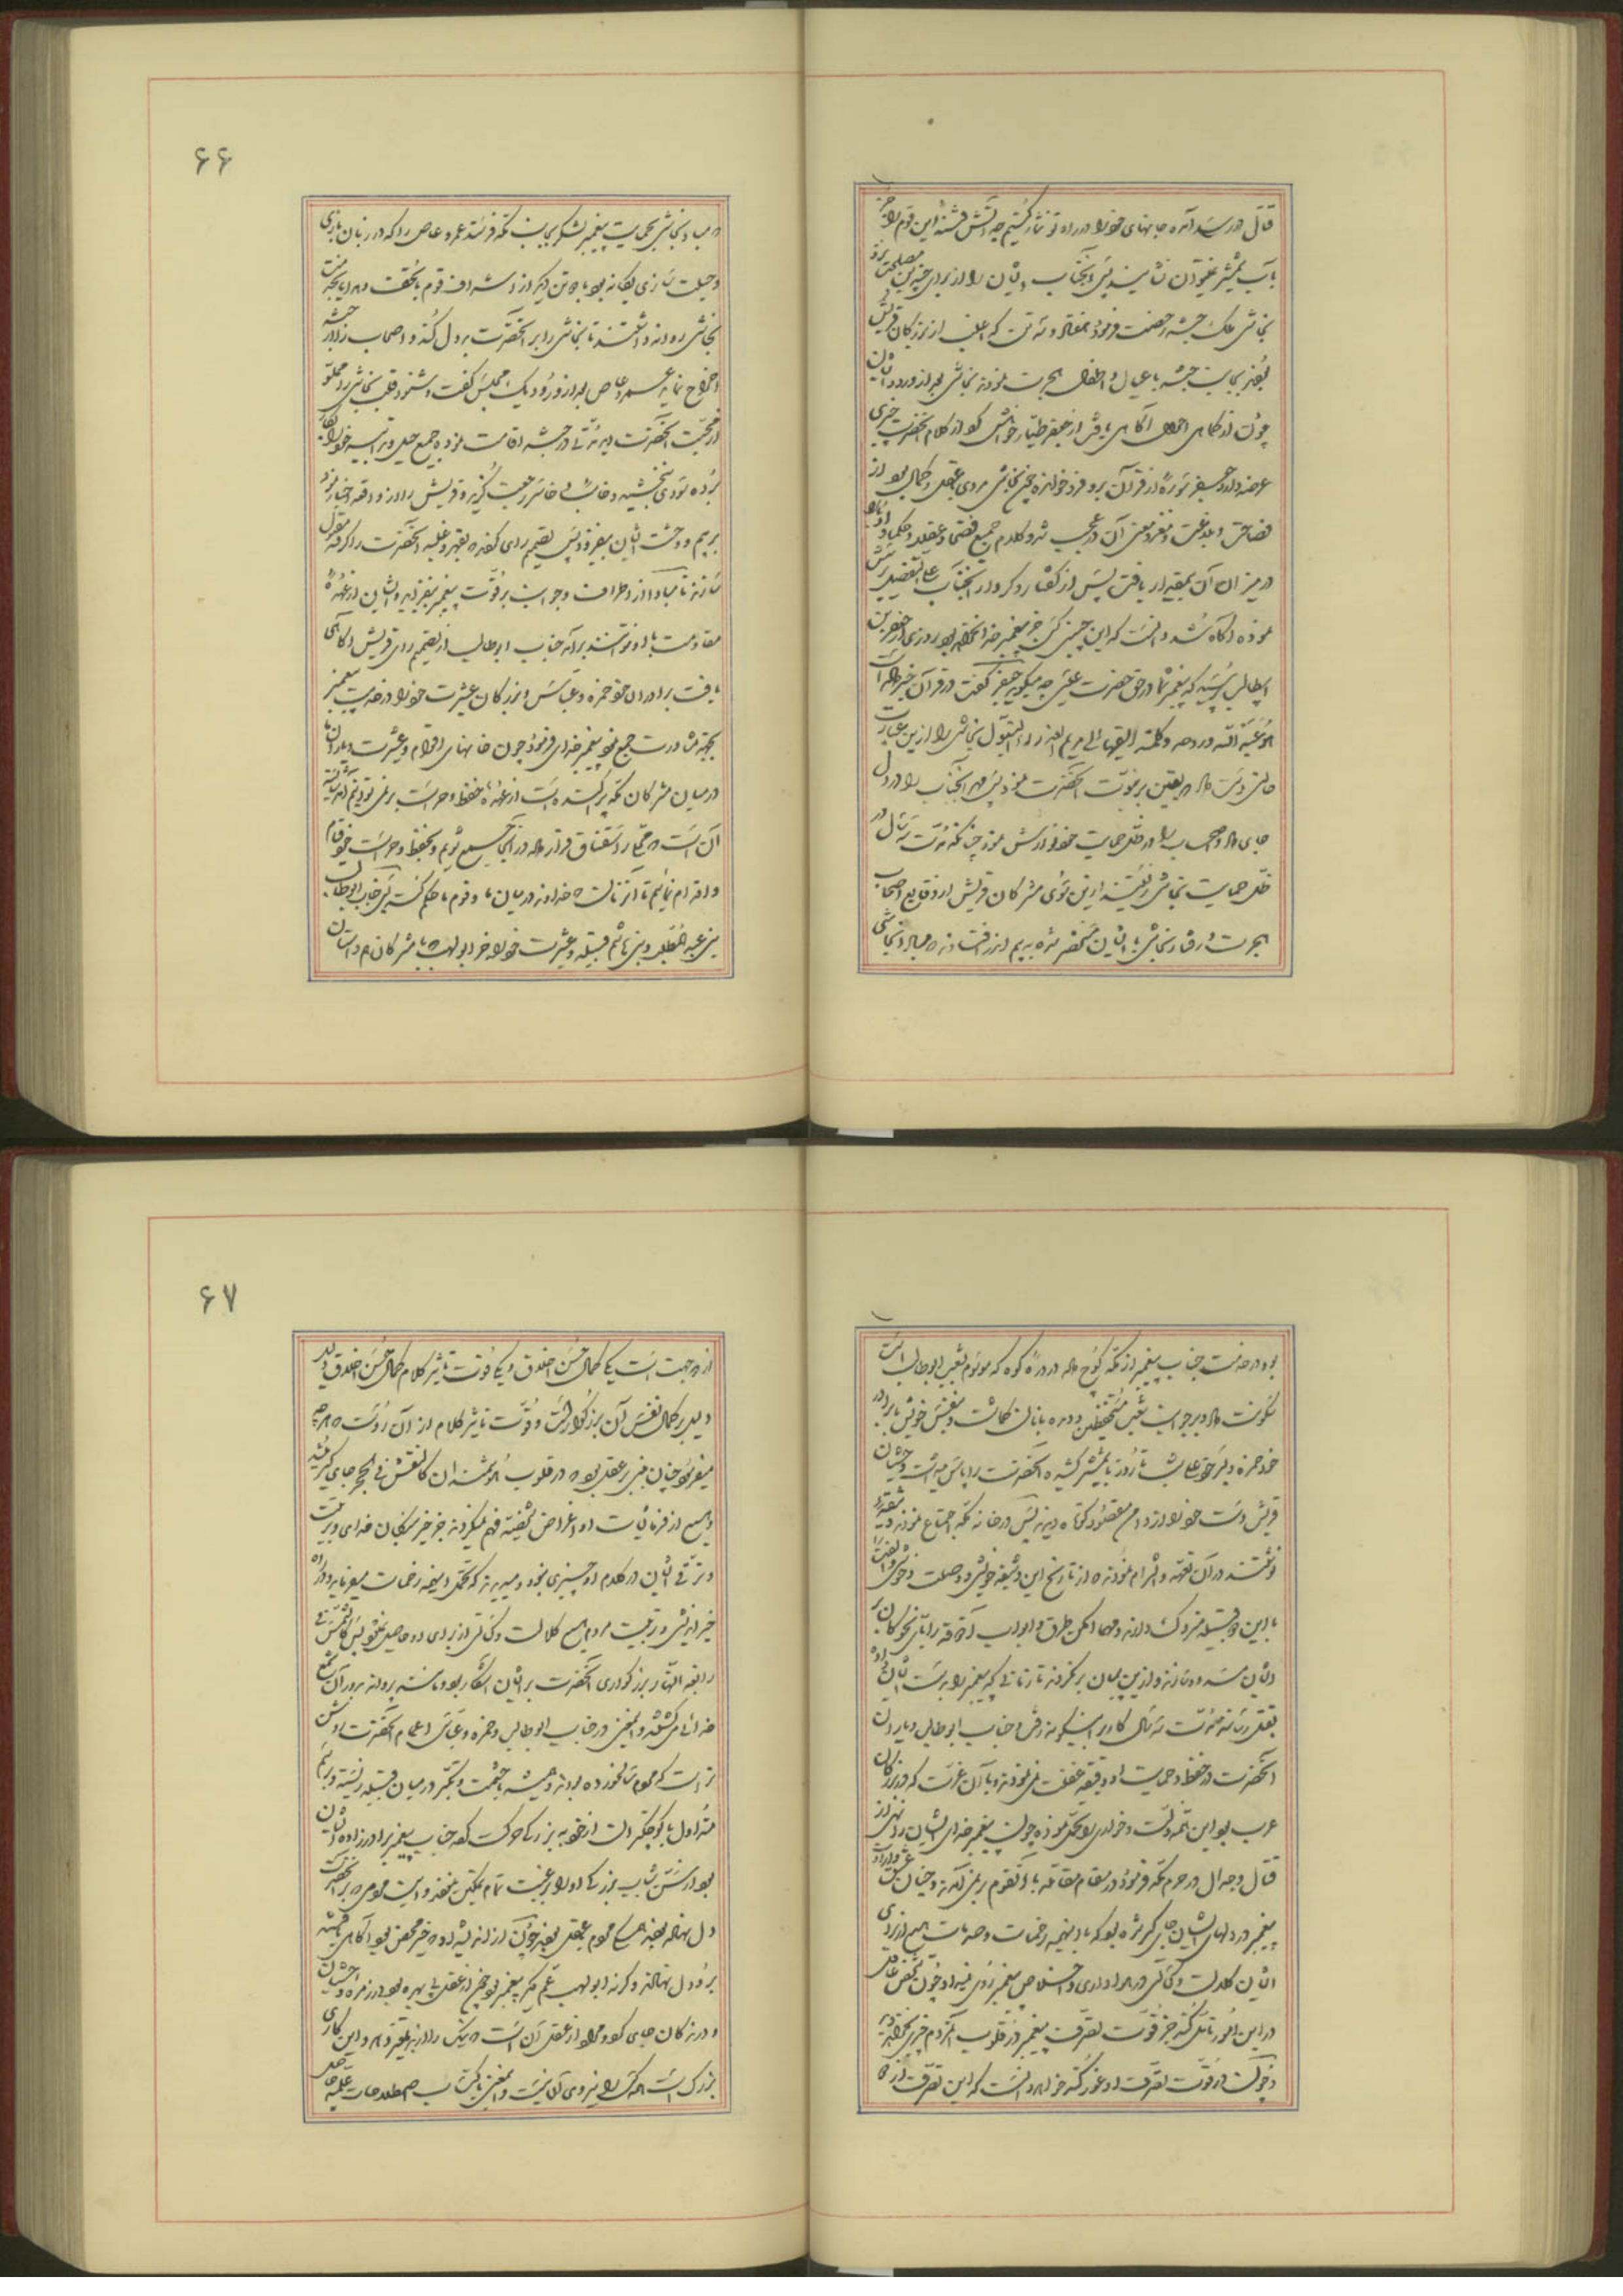 قتال در رسند آنکه جانهای خود را در راه تو نثار کنیم چه آتش فتنهٔ این قوم را جز
بآب شمشیر نتوان نشانید پس آنجناب ایشان را از برای چندین مصلحت نزد
نجاشی ملک حبشه رخصت فرمود هفتاد و نه تن که اغلب از بزرگان قریش
بودند بجانب حبشه با عیال و اطفال هجرت نمودند نجاشی بعد از ورود ایشان
چون از تمامی احوال آگاهی یافت از جعفر طیار خواهش کرد از کلام آنحضرت چیزی
عرضه دارد جعفر سورهٔ از قرآن بر او فرو خواند چون نجاشی مردی بعقل و کمال بود از
فصاحت و بلاغت و مغز و معنی آن در عجب شد و کلام جمیع فصحا و عقلا و حکما را
در میزان آن بمقدار نیافت پس از گفتار و کردار آنجناب علی التفصیل پرسش
نموده آگاه شد دانست که این چنین کس جز پیغمبر خدا نخواهد بود روزی از جعفر بن
ابیطالب پرسید که پیغمبر شما در حق حضرت عیسی چه میگوید جعفر گفت در قرآن خبر داده است
هو عبد الله و روحه و کلمته القیها الی مریم العذراء البتول نجاشی را از این عبارت
حالتی دست داد و یقین بر نبوت آنحضرت نمود پس مهر آنجناب را در دل
جای داد و اصحاب را در ظل حمایت خود نوازش نمود چنانکه مدت سه سال در
ظل حمایت نجاشی زیستند از این سوی مشرکان قریش از وقایع اصحاب
هجرت و رفتار نجاشی با ایشان مستحضر شده به بیم اندر افتادند مبادا نجاشی
۶۶
مبادا نجاشی بحمایت پیغمبر لشکری بجانب مکه فرستد عمرو عاص را که در زبان بازی
و حیلت سازی یگانه بود با دو تن دیگر از اشراف قوم با تحفت و هدایا بجهت
نجاشی روانه داشتند تا نجاشی را بر آنحضرت بد دل کند و اصحاب را از حبشه
اخراج نماید عمرو عاص بعد از ورود یک مجلس گفت و شنود قلب نجاشی را مملو
از محبت آنحضرت دید مدتی در حبشه اقامت نموده جمیع حیل و تدابیر خود را بکار
برده سودی نبخشید و خائب و خاسر رجعت گزید و قریش را از واقعه اخبار نمود
بیم و وحشت ایشان بیفزود پس تصمیم رای کردند بقهر و غلبه آنحضرت را گرفته مقتول
سازند تا مبادا از اطراف و جوانب بر قوت پیغمبر بیفزاید و ایشان از عهدهٔ
مقاومت با او نتوانند برآمد جناب ابوطالب از تصمیم رای قریش آگاهی
یافت برادران خود حمزه و عباس و بزرگان عشیرت خود را در خدمت پیغمبر
بجهة مشاورت جمع نمود پیغمبر خدای فرمود چون خانهای اقوام و عشیرت و یاران ما
در میان مشرکان مکه پراکنده است از عهدهٔ حفظ و حراست بر نمی توانیم آمد شایسته
آن است محلی را استقناق قرار داده در آنجا جمیع شویم و بحفظ و حراست خود قیام
و اقدام نمائیم تا آن زمانست خداوند در میان ما و قوم ما حکم کند پس جناب ابوطالب
بنی عبد المطلب و بنی هاشم قبیله و عشیرت خود را جز ابولهب با مشرکان همداستان
بود در خدمت جناب پیغمبر از مکه کوچ داده در درهٔ کوه که موسوم بشعب ابوطالب است
سکونت داد و بر جوانب شعب مستحفظین و دیده بانان گماشت و بنفس خویش با برادر
خود حمزه و پسر خود علی شب تا روز با شمشیر کشیده آنحضرت را پاس میداشت و چون
قریش دست خود را از دامن مقصود کوتاه دیدند پس در خانه مکه اجتماع نمودند و وثیقه
نوشتند در آن تعهد و التزام نمودند از تاریخ این وثیقه خویشی و وصلت و خرید و فروخت
با این دو قبیله متروک دارند و مهما امکن طرق و ابواب آذوقه را با این نحو کسان بر
ایشان مسدود سازند و از این پیمان بر نگردند تا زمانی که پیغمبر را بدست ایشان داده
بقتل رسانند مدت سه سال کار بر اینگونه رفت و جناب ابوطالب و یاران
آنحضرت در حفظ و حمایت او دقیقهٔ غفلت نمی نمودند و با آن عزت که در بزرگان
عرب بود این همه ذلت و خواری را متحمل بودند چون پیغمبر خدای ایشان را نهی از
قتال و جدال در حرم مکه فرمود در مقام مقاتله با آنقوم بر نمی آمدند و چنان عشق و ارادت
پیغمبر در دلهای ایشان جای گیر شده بود که با اینهمه زحمات و صدمات هیچ از برای
ایشان کلالت و کسالتی در هواداری و اخلاص پیغمبر روی نمیداد چون شخص عاقل
در این امور تأمل کند جز قوت تصرف پیغمبر در قلوب آن مردم چیزی نخواهد دید
و چون در قوت تصرف او غور کند خواهد دانست که این تصرف از دو
۶۷
از دو جهت است یکی کمال حسن اخلاق و یکی قوت تاثیر کلام کمال حسن اخلاق دلیل
دلیل بر کمال نفس آن بزرگوار است و قوت تاثیر کلام از آن روست هر چه
میفرمود چنان مبنی بر عقل بود در قلوب هوشمندان کالنقش فی الحجر جای گیر میشد
و هیچ از فرمایشات او اغراض نفسیه فهم نمیکردند جز خیر بندگان خدای و تربیت
و ترقی ایشان در کلام او چیزی نبود و میدیدند که تحمل اینهمه زحمات میفرماید و در راه
خیر اندیشی و تربیت مردم هیچ کلالت و کسالتی از برای او حاصل نمیشود پس کالشمس فی
رابعة النهار بزرگواری آنحضرت بر ایشان آشکار بود مانند پروانه بر دور آن شمع
خدائی می گشتند و اینمعنی در جناب ابوطالب و حمزه و عباس اعمام آنحضرت روشن
تر است که عموم سالخورده بودند و همیشه با حشمت و تکبر در میان قبیله زیسته و رسم
متداول با کوچکتر است از خود به بزرگی حرکت کند جناب پیغمبر برادر زاده ایشان
بود در سن شباب بزرگی او را برغبت تمام تمکین نمودند و این عموم بر آنحضرت
دل نهاده بودند همه عموم بعقل بودند چون از اندیشه او خیر محض بود آگاهی یافتند
بر او دل نهادند و گرنه ابولهب عم دیگر پیغمبر بود چون از عقل بی بهره بود از زمره وحشیان
و درندگان جای کرد و مراد از عقل آن است نیک را از بد تمیز دهد و این کاری
بزرگ است هر کس را نیروی آن نیست و اینمعنی با کتساب اصطلاحات علمیه حاصل